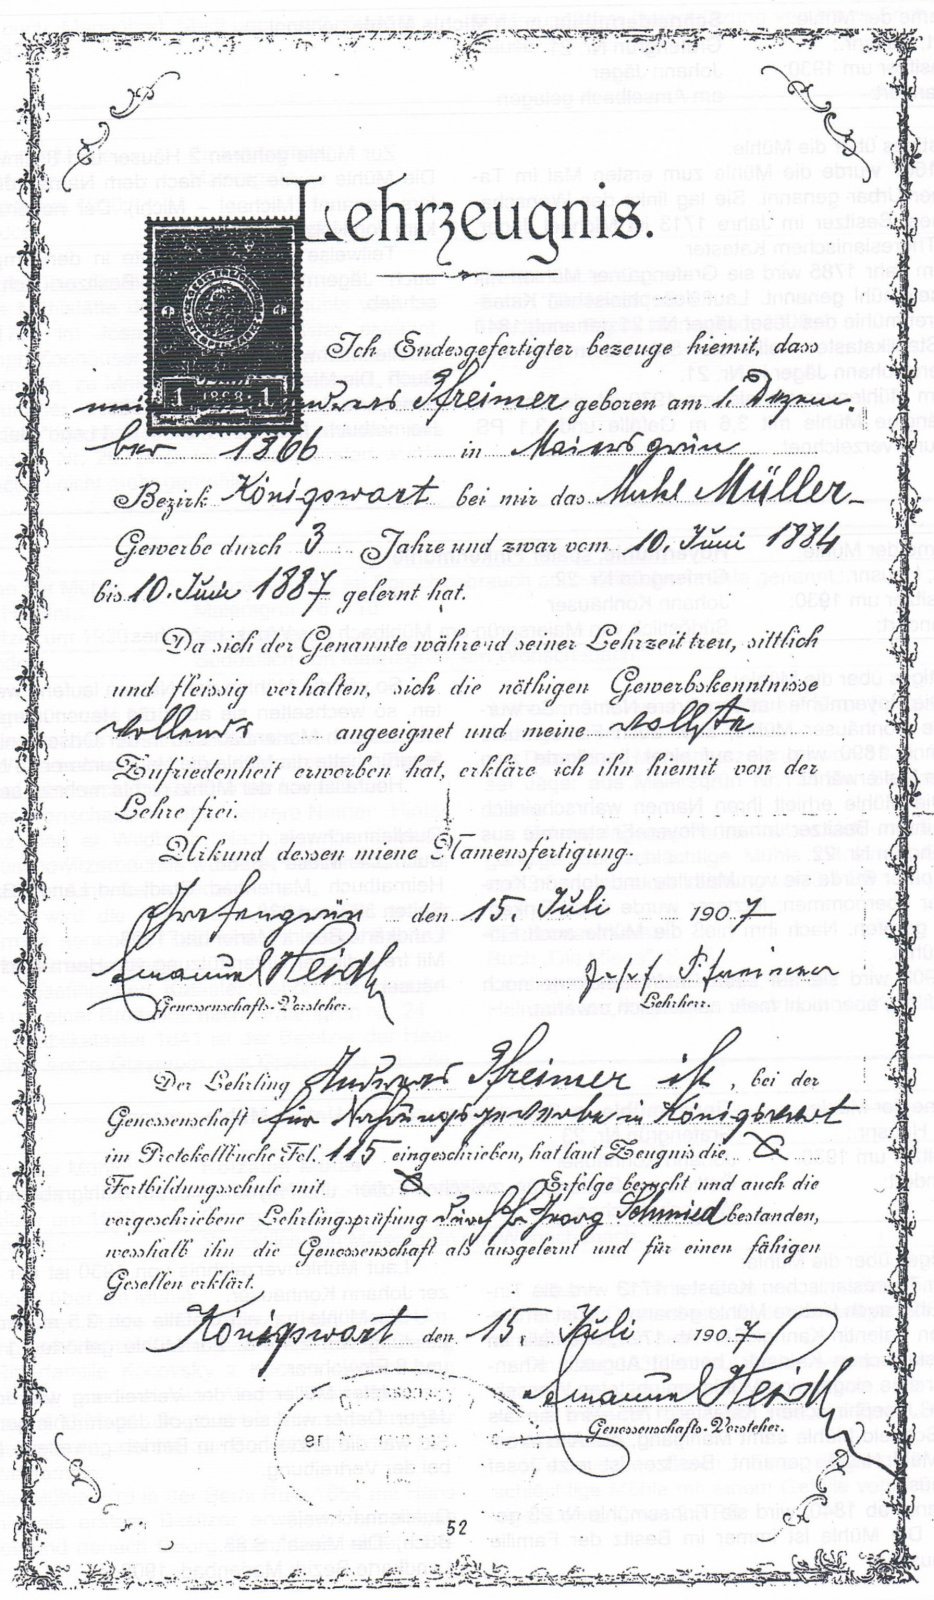 Lehrzeugnis.
1 1
Ich Endesgefertigter bezeuge hiemit, dass
Andreas Pfreimer geboren am 1. Dezem-
ber 1866 in Maiersgrün
Bezirk Königswart bei mir das Muhl Müller-
Gewerbe durch 3 Jahre und zwar vom 10. Juni 1884
bis 10. Juni 1887 gelernt hat.
Da sich der Genannte während seiner Lehrzeit treu, sittlich
und fleissig verhalten, sich die nöthigen Gewerbskenntnisse
vollends angeeignet und meine vollste
Zufriedenheit erworben hat, erkläre ich ihn hiemit von der
Lehre frei.
Urkund dessen miene Namensfertigung.
Grafengrün den 15. Juli 1907
Emanuel Heidl Josef Pfreimer
Genossenschafts-Vorsteher. Lehrherr.
Der Lehrling Andreas Pfreimer ist, bei der
Genossenschaft für Nahrungsgewerbe in Königswart
im Protokollbuche Fol. 115 eingeschrieben, hat laut Zeugnis die
Fortbildungsschule mit Erfolge besucht und auch die
vorgeschriebene Lehrlingsprüfung durch H. Georg Schmied bestanden,
wesshalb ihn die Genossenschaft als ausgelernt und für einen fähigen
Gesellen erklärt.
Königswart den 15. Juli 1907
Emanuel Heidl
Genossenschafts-Vorsteher.
52